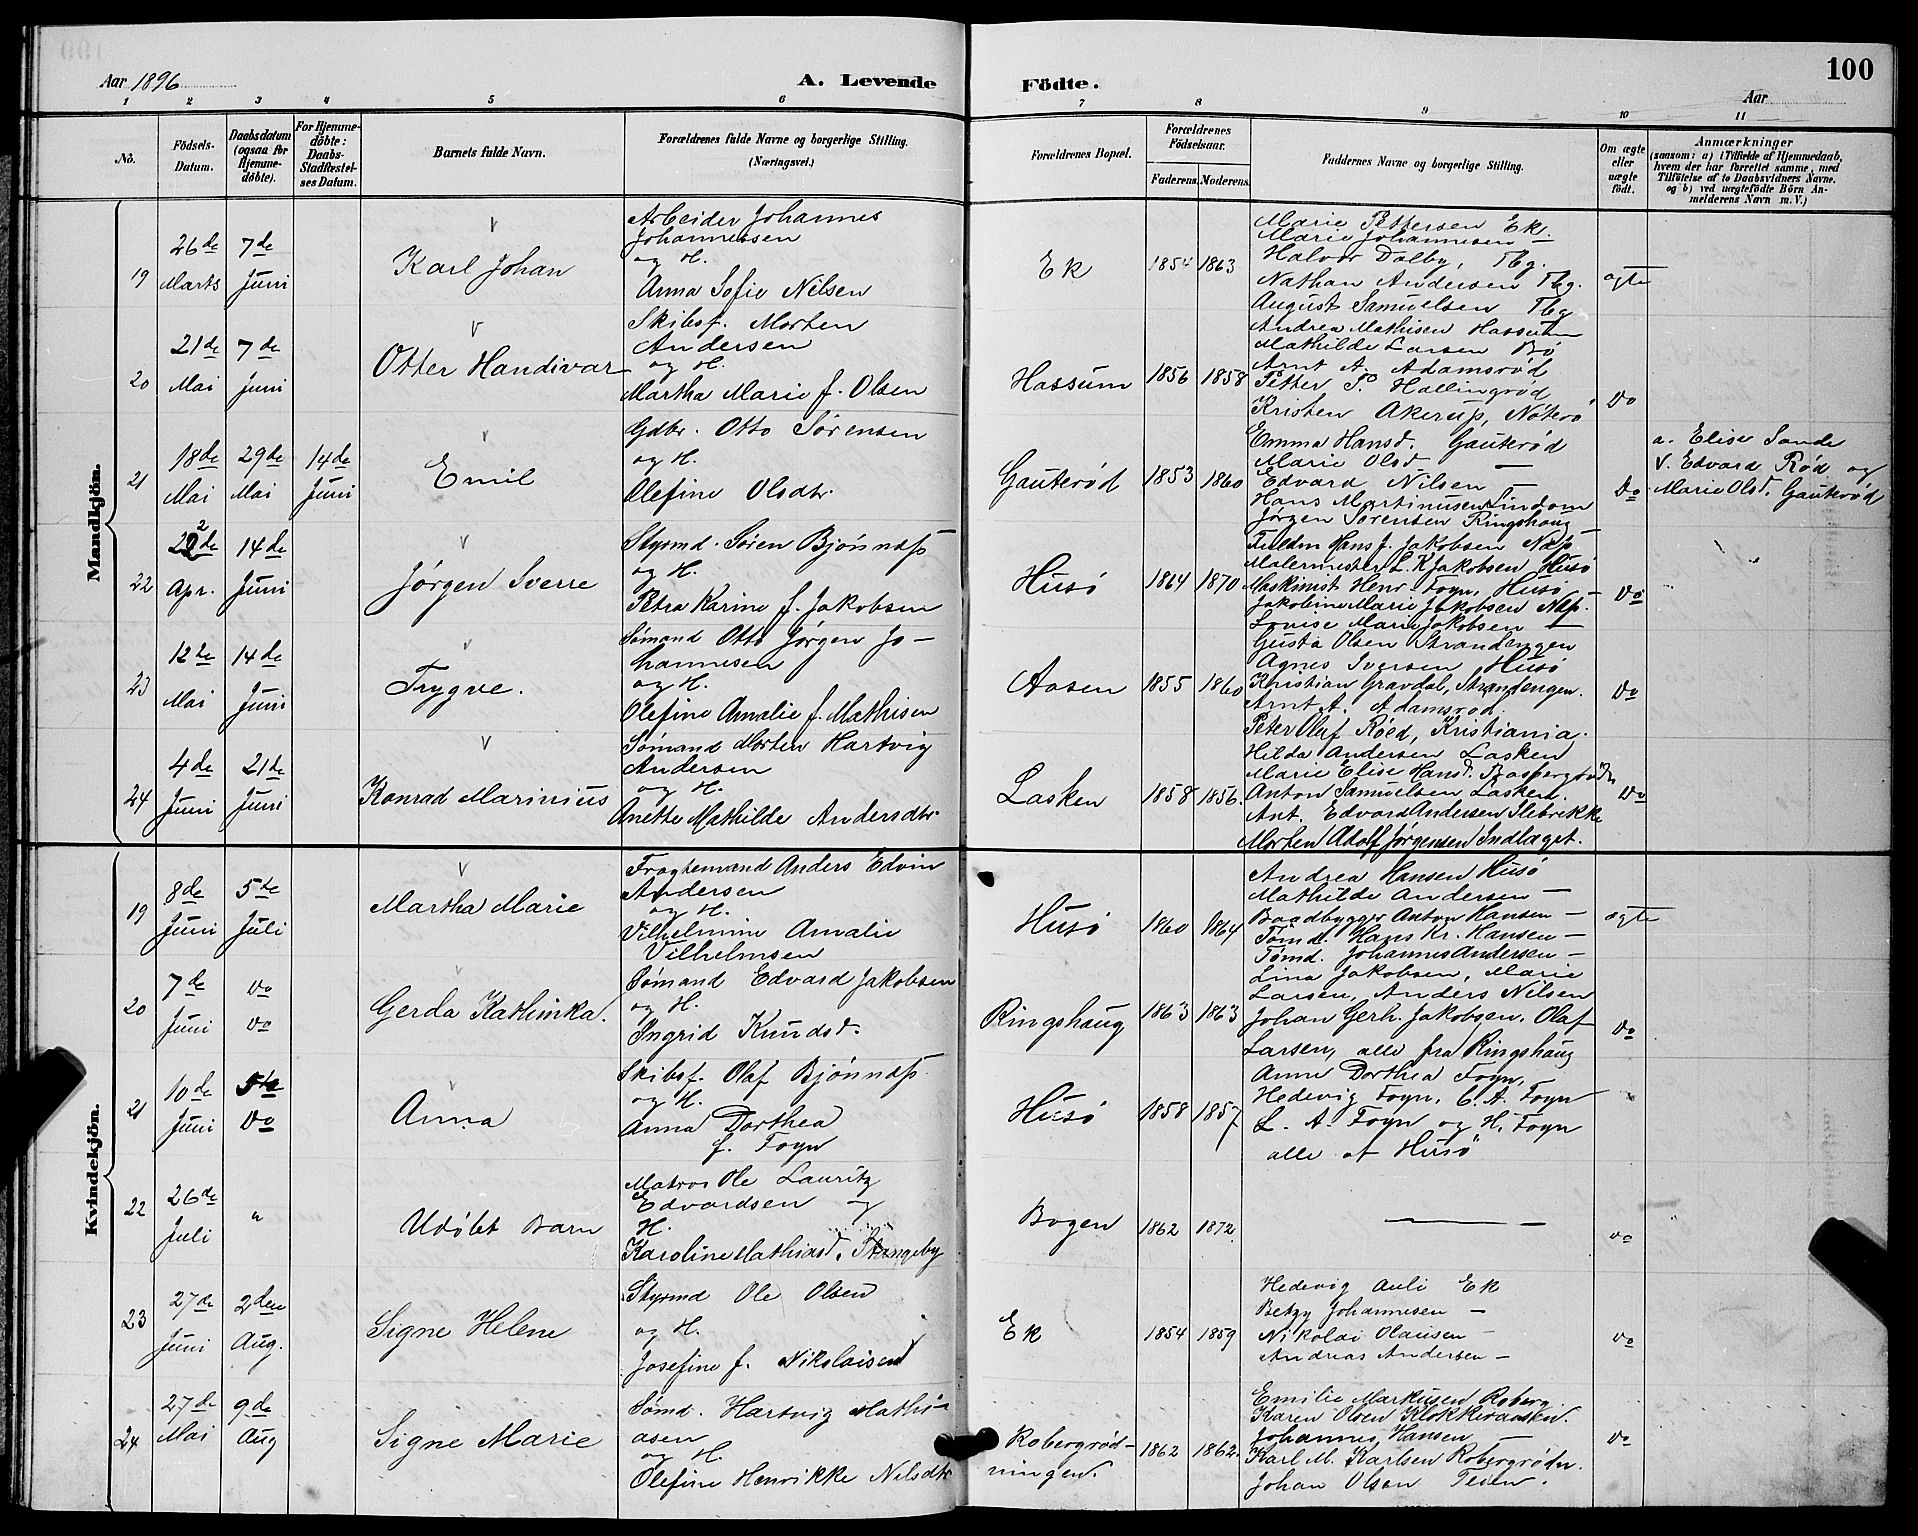 Aar 1896
A. Levende Födte.
100
Aar
1 2 3 4 5 6 7 8 9 10 11
No.
Födsels-Datum.
Daabsdatum (ogsaa for Hjemme-döbte).
For Hjemme-döbte: Daabs-Stadfæstel-ses Datum.
Barnets fulde Navn.
Forældrenes fulde Navne og borgerlige Stilling.
(Næringsvei.)
Forældrenes Bopæl.
Forældrenes Födselsaar.
Faderens. Moderens.
Faddernes Navne og borgerlige Stilling.
Om ægte eller uægte födt.
Anmærkninger
(saasom: a) i Tilfælde af Hjemmedaab,
hvem der har forrettet samme, med
Tilföielse af to Daabsvidners Navne.
og b) ved uægtefödte Börn An-
melderens Navn m. V.)
Mandkjön.
19
26de Marts
7de Juni
Karl Johan
Arbeider Johannes
Johannessen
og H.
Anna Sofie Nilsen
Ek
1854 1863
Marie Pettersen Ek.
Marie Johannesen —
Halvor Dalby, Tbg.
Nathan Andersen Tbg.
August Samuelsen Tbg
ægte
20
21de Mai
7de Juni
Otter Handivar
Skibsf. Morten
Andersen
og H.
Martha Marie f. Olsen
Hassum
1856 1858
Andrea Mathisen Hassum
Mathilde Larsen Bö
Arnt A. Adamsrød
Petter P. Hallingrød
Kristen Akerup, Nøterø
Do
21
18de Mai
29de Mai
14de Juni
Emil
Gdbr. Otto Sørensen
og H.
Olefine Olsdtr.
Gauterød
1853 1860
Emma Hansd. Gauterød
Marie Olsd —
Edvard Nilsen —
Hans Martinusen Lindom
Jørgen Sørensen Ringshaug
Do
a. Elise Sande
V. Edvard Rød og
Marie Olsd. Gauterød
22
22de Apr.
14de Juni
Jørgen Sverre
Styrmd. Søren Bjønnæss
og H.
Petra Karine f. Jakobsen
Husö
1864 1870
Hans J. Jakobsen Næss
Malermester L. K. Jakobsen Husö
Maskinist Henr. Foyn, Husö
Jakobine Marie Jakobsen Næss.
Lovise Marie Jakobsen —
Do
23
12te Mai
14de Juni
Trygve.
Sømand Otto Jørgen Jo-
hannesen
og H.
Olefine Amalie f. Mathisen
Aasen
1855 1860
Gusta Olsen Strandengen
Agnes Iversen Husö
Kristian Gravdal, Strandengen.
Arnt A. Adamsrød.
Peter Oluf Røed, Kristiania.
Do
24
4de Juni
21de Juni
Konrad Marinius
Sømand Morten Hartvig
Andersen
og H.
Anette Mathilde Andersdtr.
Lasken
1858 1856.
Hilda Andersen Lasken
Marie Elise Hansd.
Anton Samuelsen Lasken.
Ant. Edvard Andersen Ilebrekke
Morten Adolf Jørgensen Indlaget.
Do
Kvindekjön.
19
8de Juni
5te Juli
Martha Marie
Fragtemand Anders Edvin
Andersen
og H.
Vilhelmine Amalie
Vilhelmsen
Husö
1860 1864
Andrea Hansen Husö
Mathilde Andersen —
Baadbygger Anton Hansen —
Tømd. Hans Kr. Hansen —
Tømd. Johannes Andersen —
ægte
20
7de Juni
Do Do
Gerda Kathinka.
Sømand Edvard Jakobsen
og H.
Ingrid Knudsd.
Ringshaug
1863 1863
Lina Jakobsen, Marie
Larsen, Anders Nilsen
Johan Gerh. Jakobsen, Olaf
Larsen, alle fra Ringshaug
Do
21
10de Juni
5te Do
Anna
Skibsf. Olaf Bjønnæss.
og H.
Anna Dorthea
f. Foyn
Husö
1858 1857
Anne Dorthea Foyn,
Hedevig Foyn, C. A. Foyn
L. A. Foyn og H. Foyn
alle af Husö
22
26de Juli
"
Udøbt Barn
Matros Ole Lauritz
Edvardsen og
H.
Karoline Mathiasd. Strengeby
Bogen
1862 1872
—
Do
23
27de Juni
2den Aug.
Signe Helene
Styrmd Ole Olsen
og H.
Josefine f. Nikolaisen
Ek
1854 1859
Hedevig Auli Ek
Betzy Johannesen —
Nikolai Olausen —
Andreas Andersen —
Do
24
27de Mai
9de Aug
Signe Marie
Sømd. Hartvig Mathi-
asen
og H.
Olefine Henrikke Nilsdtr
Robergrød-
ningen.
1862 1862.
Emilie Markusen Roberg
Karen Olsen
Johannes Hansen —
Karl M. Karlsen Robergrødn.
Johan Olsen Teien.
Do